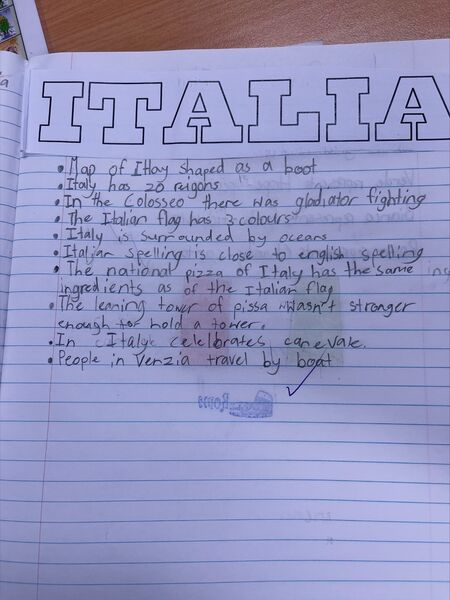 ITALIA
• Map of Itlay shaped as a boot
• Italy has 20 reigons
• In the Colosseo there was gladiator fighting
• The Italian flag has 3 colours
• Italy is surrounded by oceans
• Italian spelling is close to english spelling
• The national pizza of Italy has the same ing
ingredients as of the Italian flag
• The leaning tower of pissa wasn't stronger
enough for hold a tower.
• In Italy celelbrates canevale.
• People in Venzia travel by boat